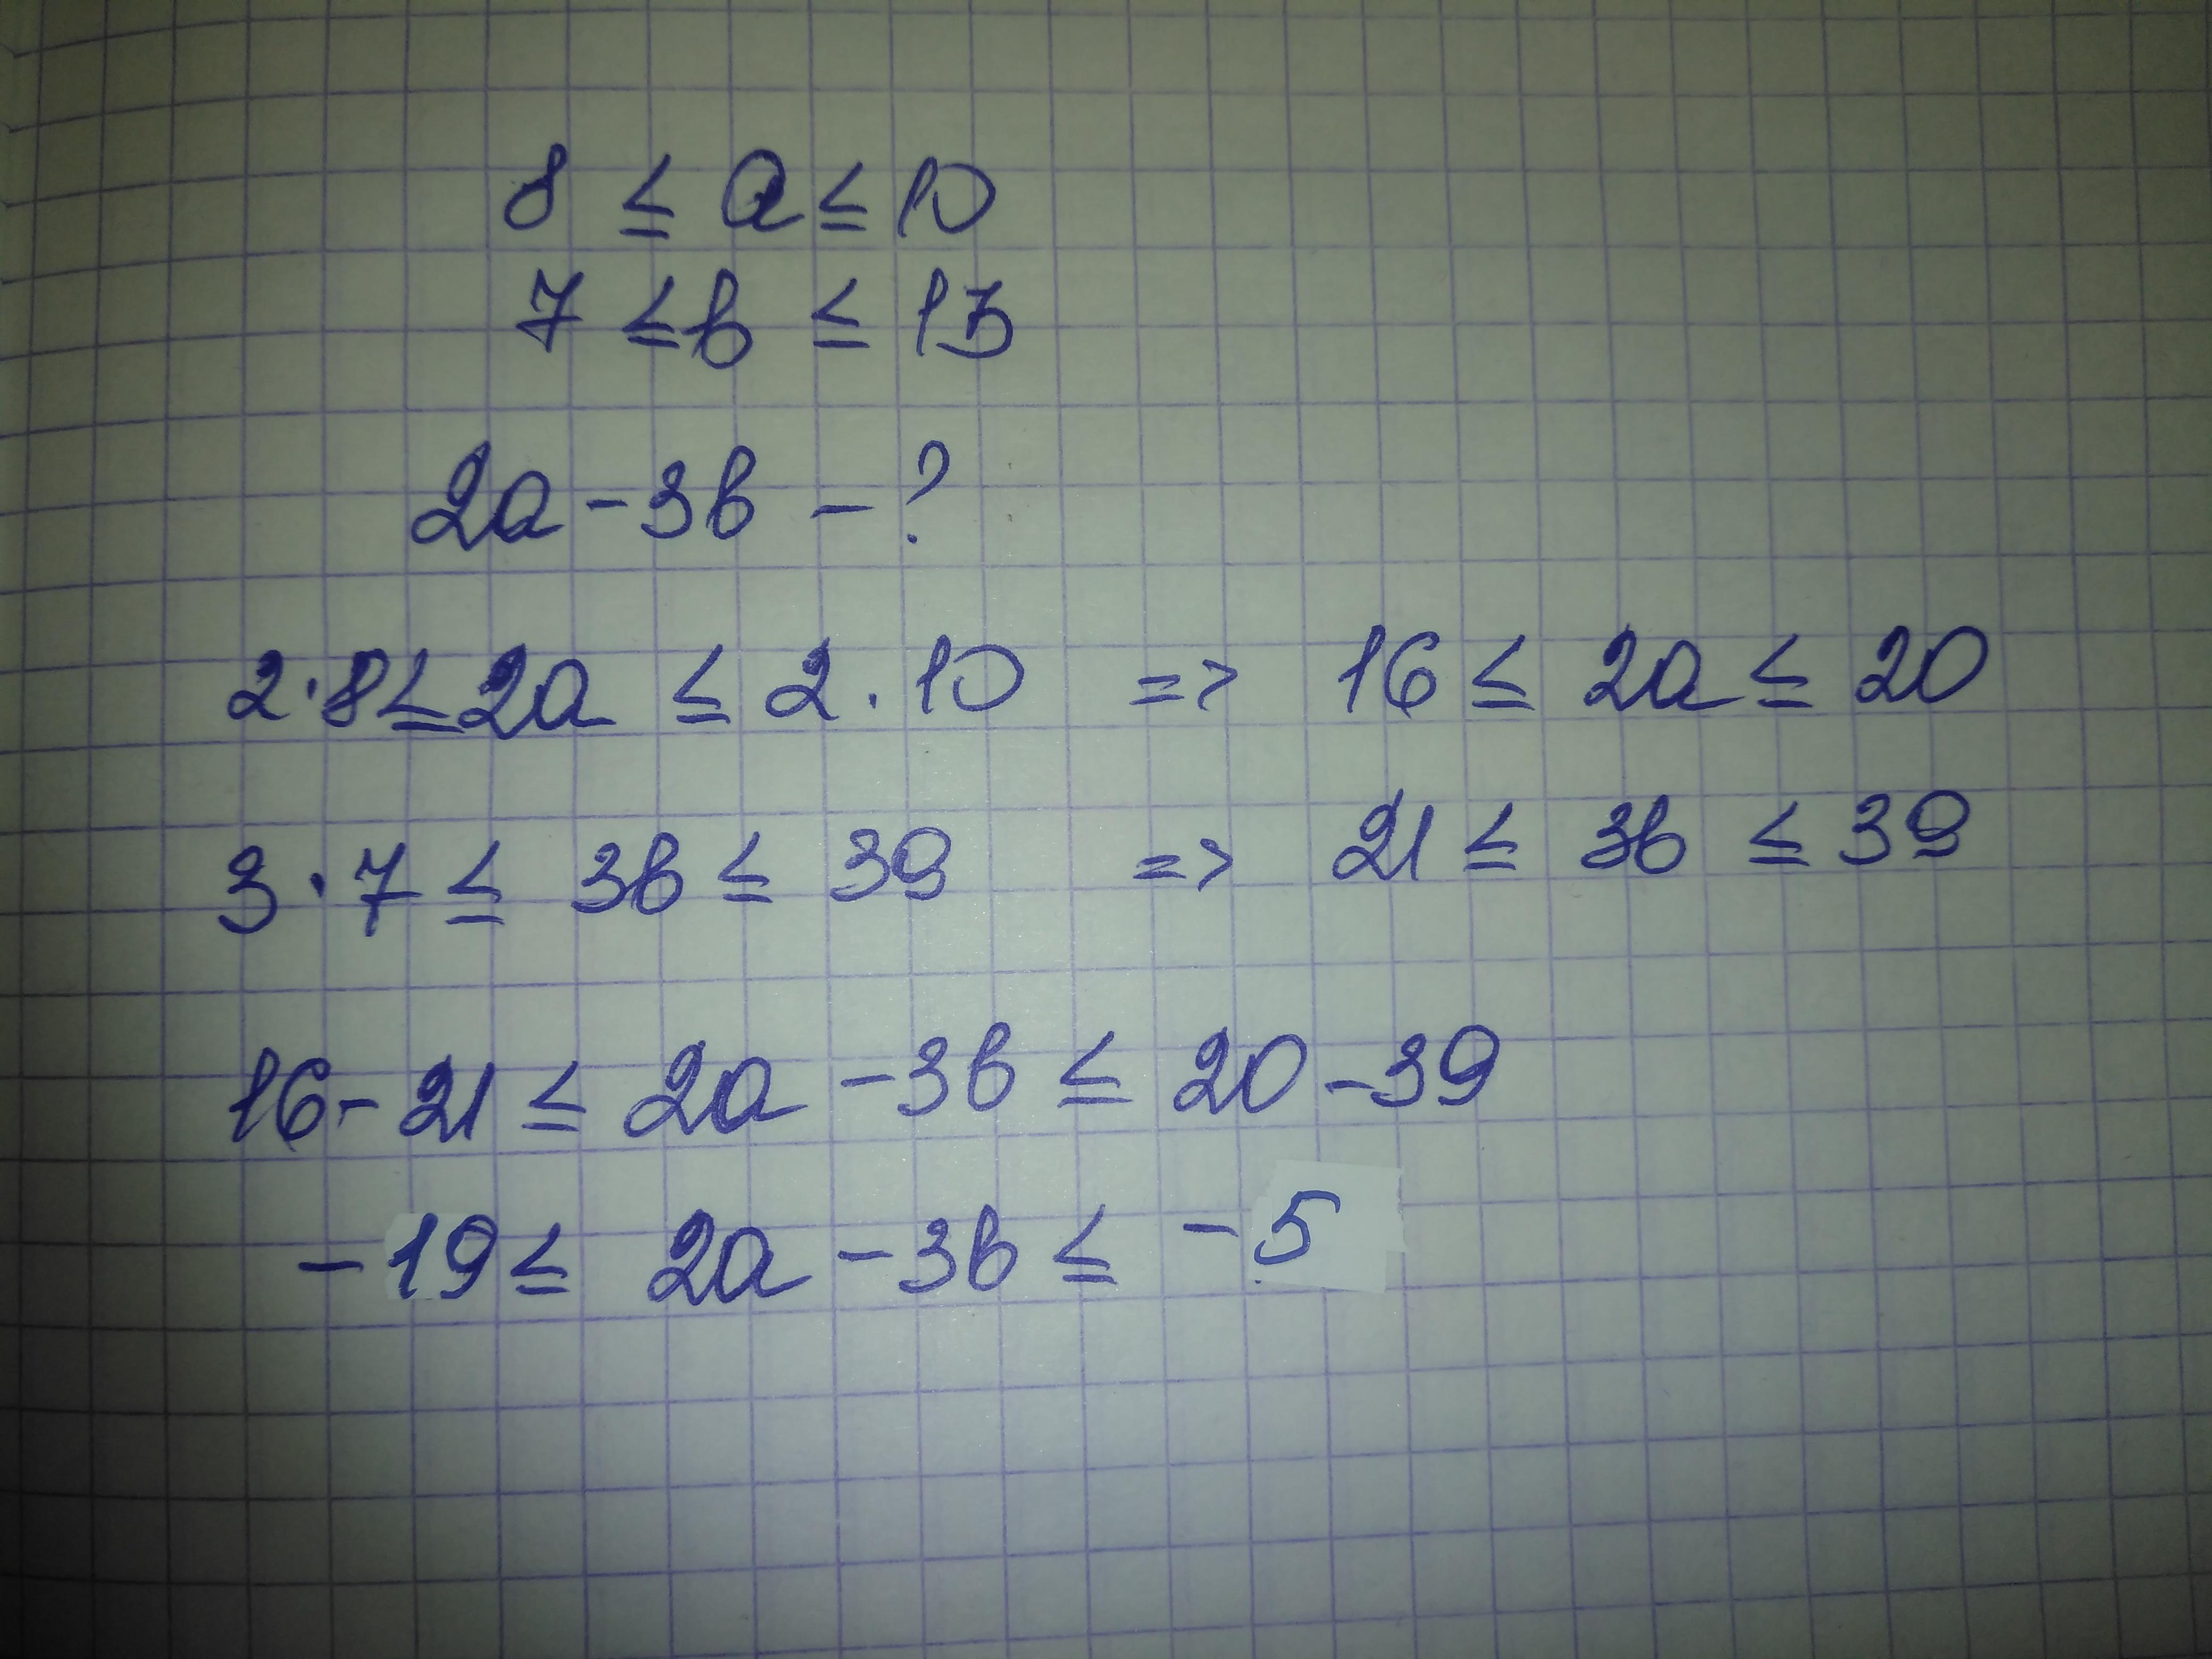 8 ≤ a ≤ 10
7 ≤ b ≤ 13
2a - 3b - ?
2·8 ≤ 2a ≤ 2·10 => 16 ≤ 2a ≤ 20
3·7 ≤ 3b ≤ 39 => 21 ≤ 3b ≤ 39
16 - 21 ≤ 2a - 3b ≤ 20 - 39
-19 ≤ 2a - 3b ≤ -5